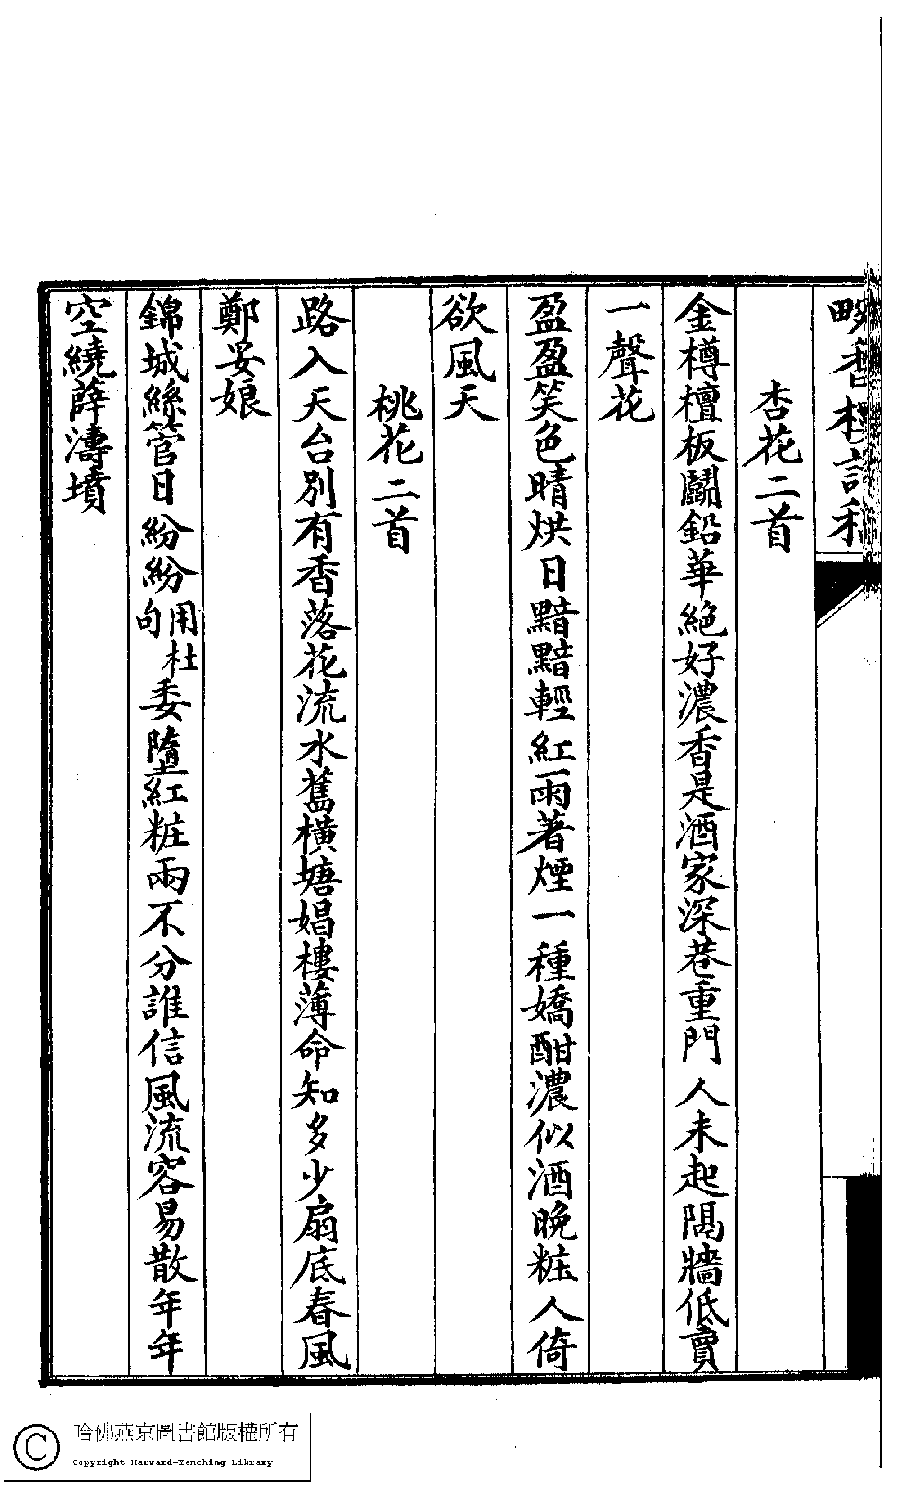 杏花二首
金樽檀板鬭鉛華絕好濃香是酒家深巷重門人未起隔牆低賣
一聲花
盈盈笑色晴烘日黯黯輕紅雨著煙一種嬌酣濃似酒晚粧人倚
欲風天
桃花二首
路入天台別有香落花流水舊橫塘娼樓薄命知多少扇底春風
鄭妥娘
錦城絲管日紛紛用杜句委墮紅粧兩不分誰信風流容易散年年
空繞薛濤墳
哈佛燕京圖書館版權所有
Copyright Harvard-Yenching Library